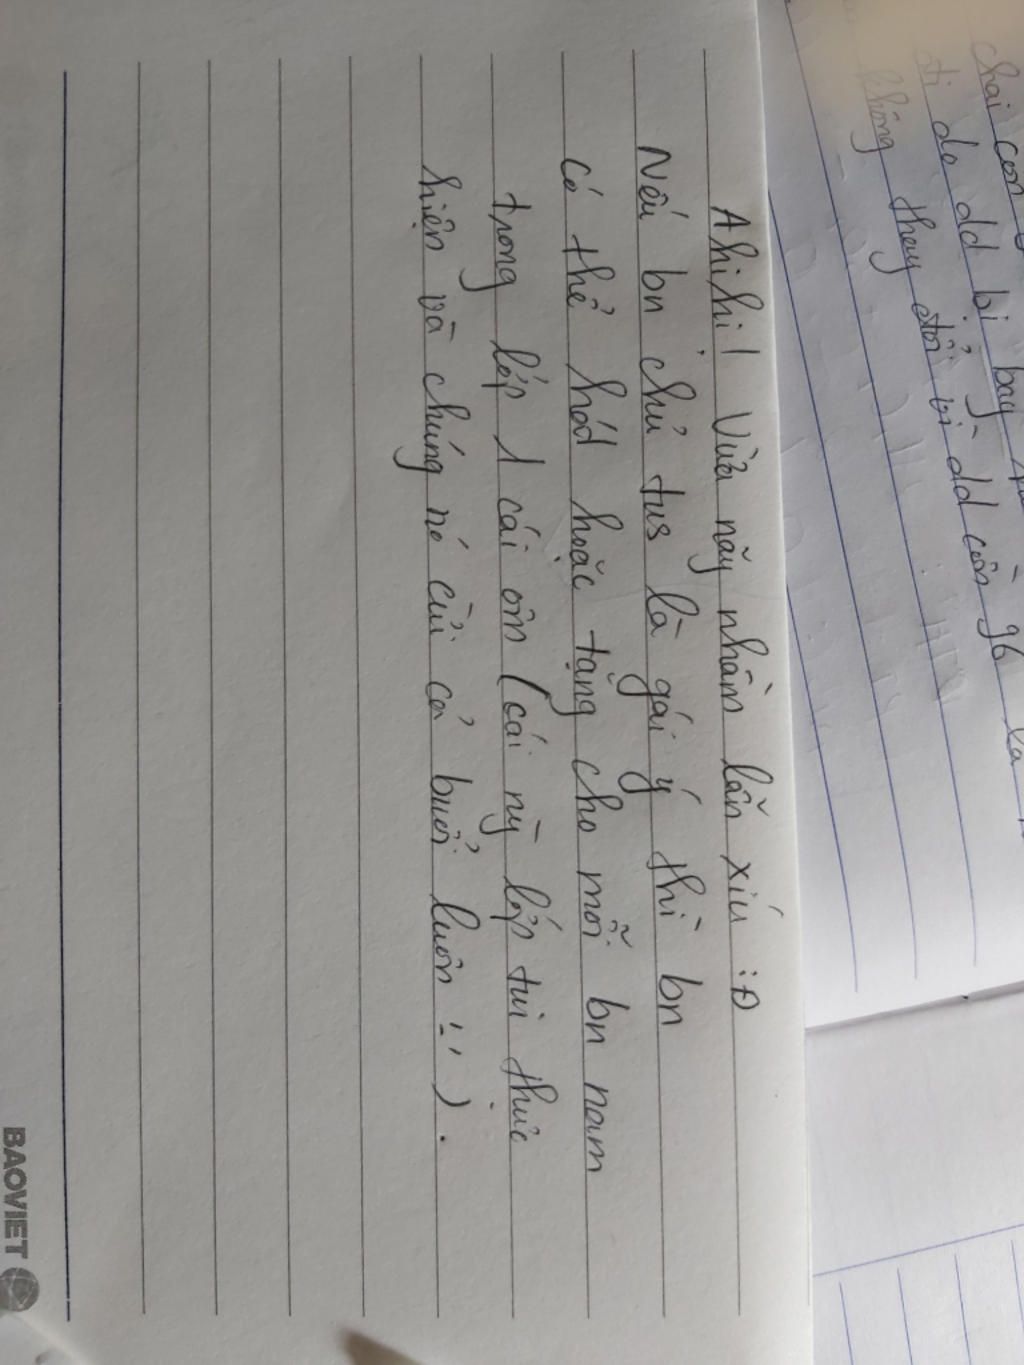 Ahihi! Vừa nãy nhầm lẫn xíu :Đ
Nếu bn chủ tus là gái ý thì bn
có thể hód hoặc tặng cho mỗi bn nam
trong lớp 1 cái ôm (cái nỳ lớp tui thực
hiện và chúng nó cừi cả buổi luôn :')).
BAOVIET
chai con
đi do dd bị bay
không thay đổi vì dd còn
là